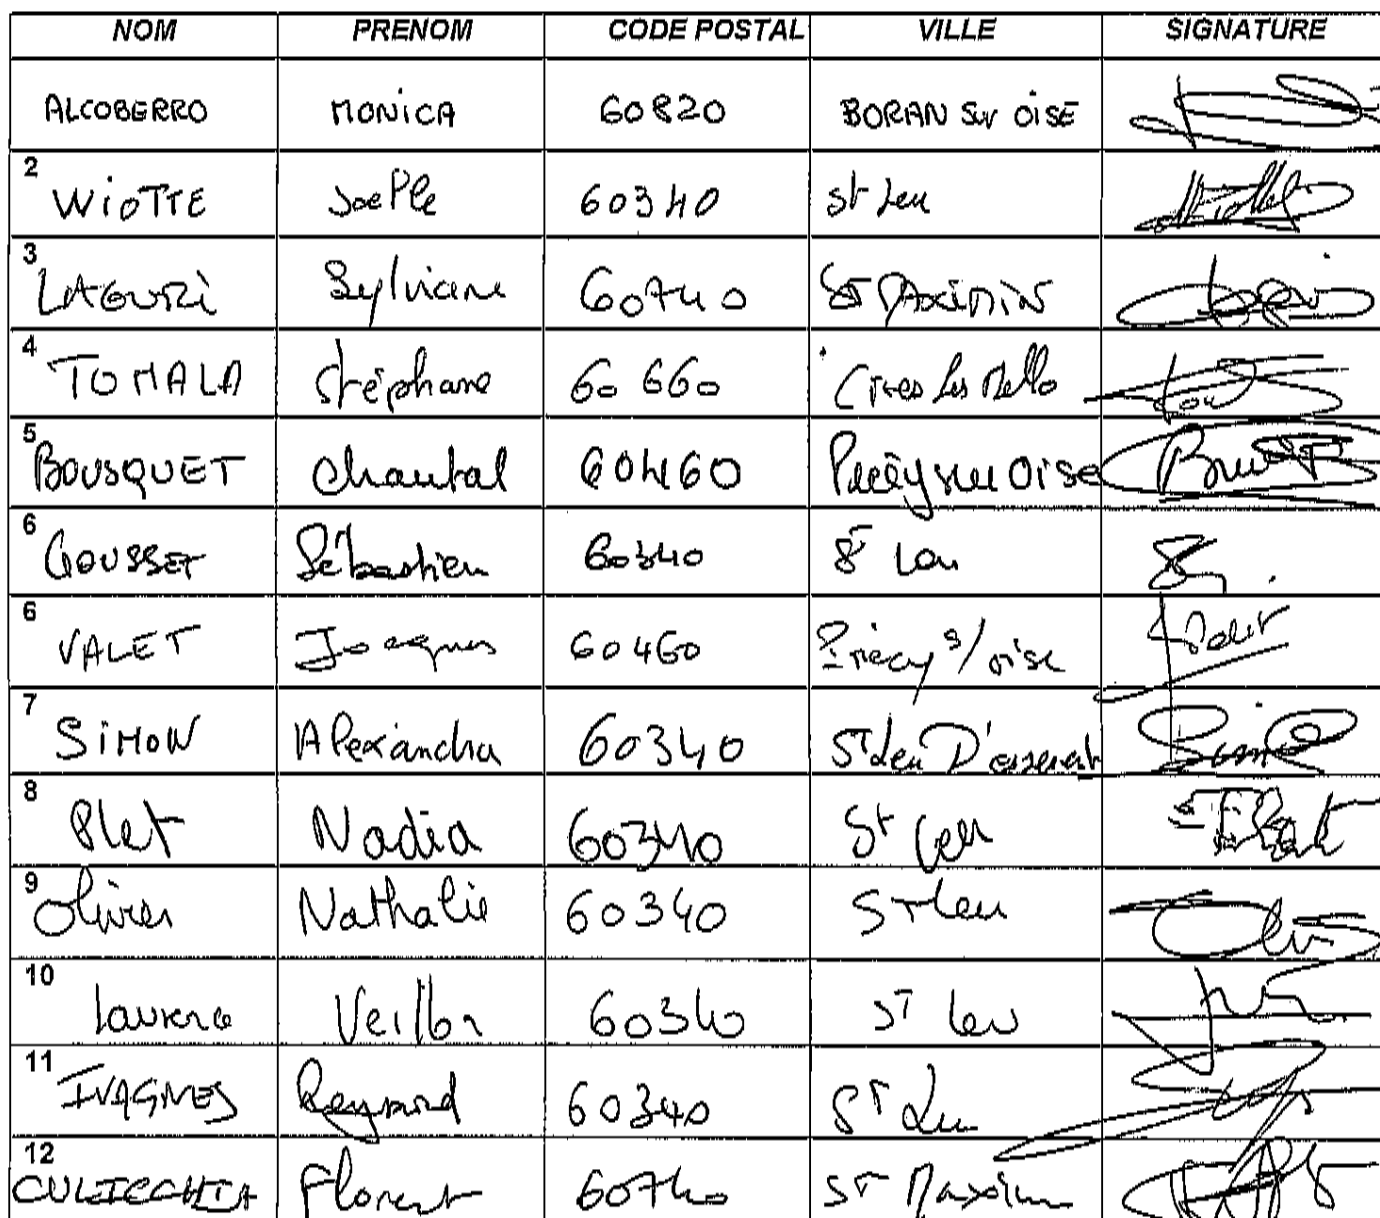 NOM PRENOM CODE POSTAL VILLE SIGNATURE
ALCOBERRO MONICA 60820 BORAN Sur OISE
2 WIOTTE Joelle 60340 St Leu
3 LAGURI Sylviane 60740 ST MAXIMIN
4 TOMALA Stéphane 60660 Cires les Mello
5 BOUSQUET Chantal 60460 Précy sur Oise
6 GOUSSET Sébastien 60340 St Leu
6 VALET Jacques 60460 Précy s/ oise
7 SIMON Alexandra 60340 ST Leu D'esserent
8 Plet Nadia 60340 St Leu
9 Olivier Nathalie 60340 ST Leu
10 Laurence Veillon 60340 ST Leu
11 IVAGNES Reynard 60340 ST Leu
12 CULICCHIA Florent 60740 ST Maximin